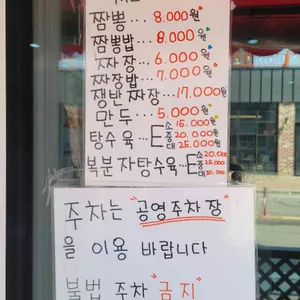 짬뽕... 8.000원
짬뽕밥... 8.000원
짜장... 6.000원
짜장밥... 7.000원
쟁반 짜장... 17.000원
만두... 5.000원
탕수육... 소 15.000 중 20.000 대 25.000
복분자탕수육... 소 20.000 중 25.000 대 30.000
주차는 "공영주차장"
을 이용 바랍니다
불법 주차 "금지"